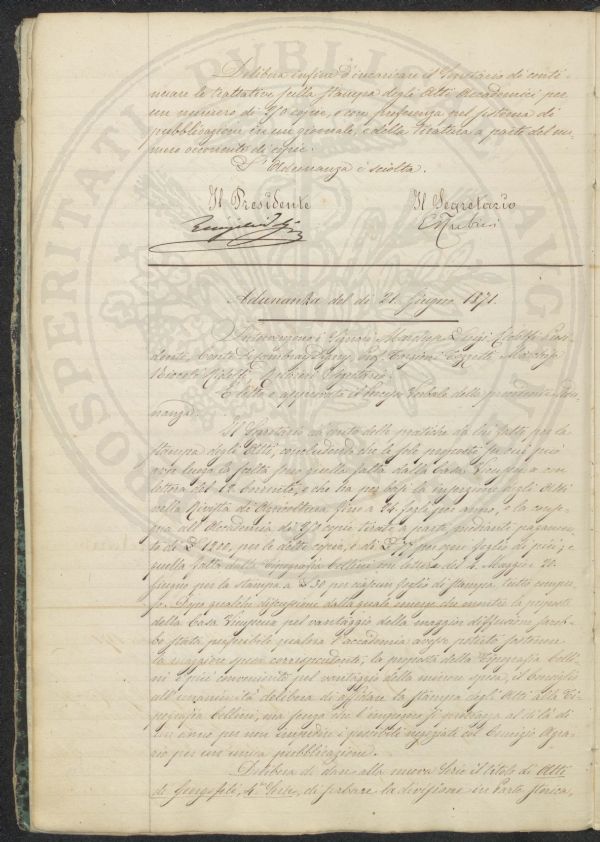 Delibera infine d'incaricare il Segretario di conti-
nuare le trattative sulla stampa degli Atti Accademici per
un numero di 750 copie, e con preferenza nel sistema di
pubblicazioni in un giornale, e della tiratura a parte del nu-
mero occorrente di copie.
L'Adunanza è sciolta.
Il Presidente
Il Segretario
Adunanza del dì 21. Giugno 1871.
Intervennero i Signori Luigi Ridolfi Presi-
dente, Conte Digny, Targioni Tozzetti, Marchese
Segretario.
È letto e approvato il Processo Verbale della precedente Adu-
nanza.
Il Segretario dà conto delle pratiche da lui fatte per la
stampa degli Atti, concludendo che le sole proposte su cui può
aver luogo la scelta sono quella fatta dalla Casa con
lettera del corrente, e che ha per base la inserzione degli Atti
nella Rivista di Agricoltura fino a 24. fogli per anno, e la conse-
gna all'Accademia di 750 copie tirate a parte mediante pagamen-
to di £ 1200, per le dette copie, e di £ per ogni foglio di più; e
quella fatta dalla Tipografia Cellini con lettere del 4. Maggio e 20.
Giugno per la stampa a £ 50 per ciascun foglio di stampa, tutto compre-
so. Dopo qualche discussione dalla quale emerge che mentre la proposta
della Casa pel vantaggio della maggior diffusione sareb-
be stata preferibile qualora l'Accademia avesse potuto sostenere
la maggiore spesa corrispondente, la proposta della Tipografia Celli-
ni è più conveniente pel vantaggio della minore spesa, il Consiglio
all'unanimità delibera di affidare la stampa degli Atti alla Ti-
pografia Cellini, ma senza che l'impegno si protragga al di là di
un anno per non impedire i possibili negoziati col Comizio Agra-
rio per una unica pubblicazione.
Delibera di dare alla nuova Serie il titolo di Atti
dei Georgofili, 4.a Serie, di serbare la divisione in Parte storica,